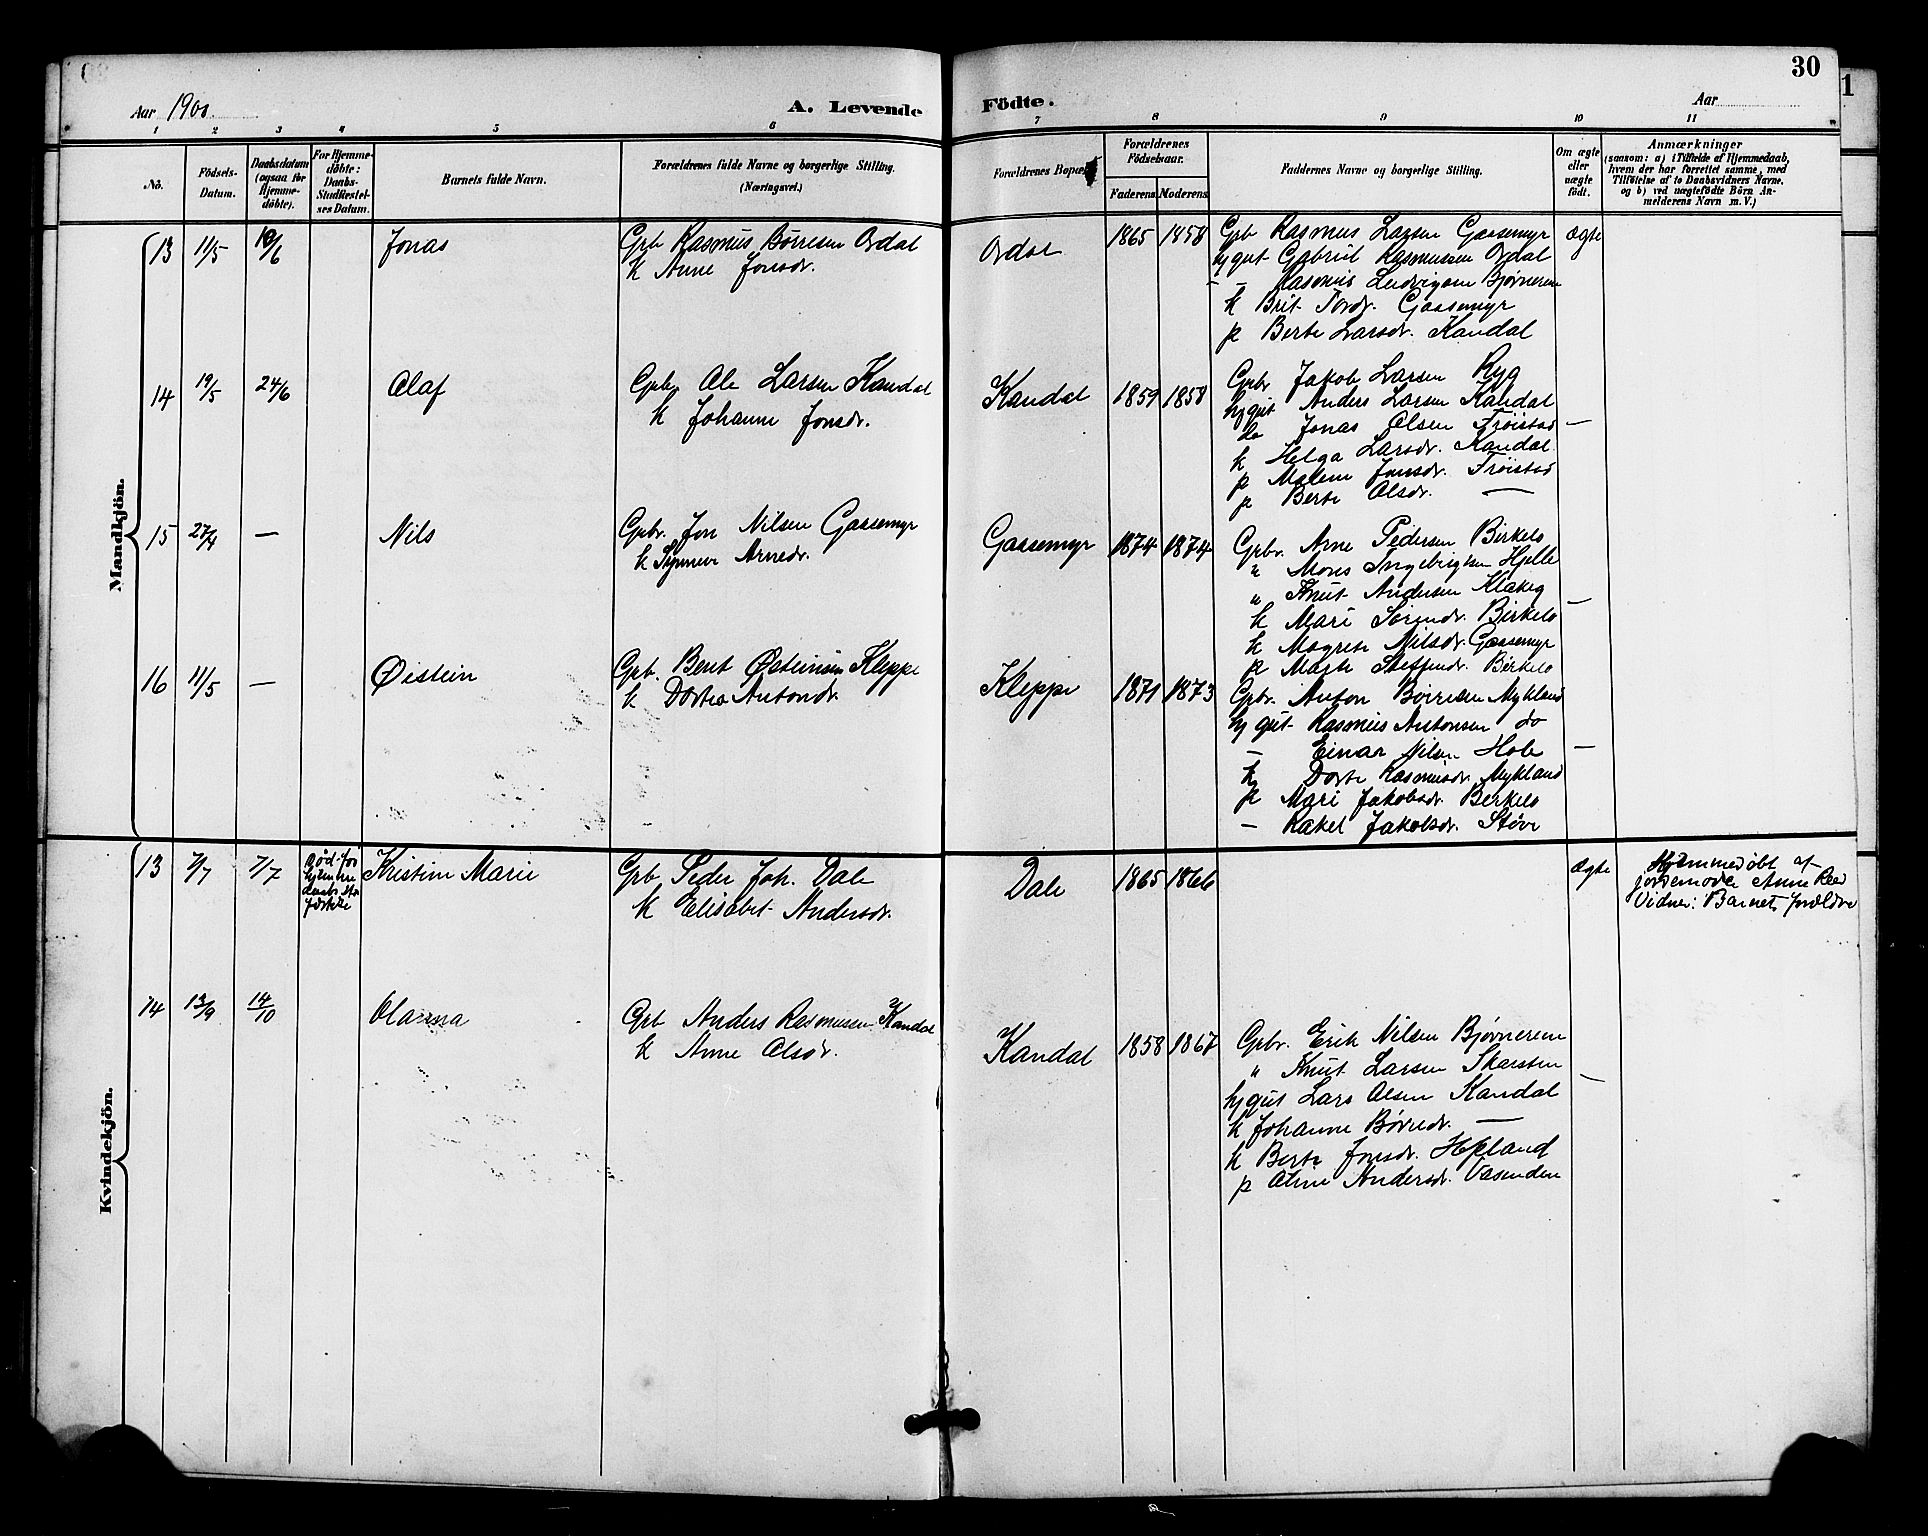 30
Aar 1900
A. Levende Födte.
Aar
1 2 3 4 5 6 7 8 9 10 11
No.
Födsels-Datum.
Daabsdatum (ogsaa for Hjemme-döbte).
For Hjemme-döbte: Daabs-Stadfæstel-ses Datum.
Barnets fulde Navn.
Forældrenes fulde Navne og borgerlige Stilling. (Næringsvei.)
Forældrenes Bopæl
Forældrenes Födselsaar.
Faderens Moderens
Faddernes Navne og borgerlige Stilling.
Om ægte eller uægte födt.
Anmærkninger
(saasom: a) i Tilfælde af Hjemmedaab, hvem der har forrettet samme, med Tilföielse af to Daabsvidners Navne, og b) ved uægtefödte Börn An-melderens Navn m. V.)
Mandkjön.
13 11/5 10/6 Jonas
Grb Rasmus Børresen Ordal
k Anne Jonsdr.
Ordal 1865 1858
Grb Rasmus Larsen Gaasemyr
hj gut Gabriel Rasmussen Ordal
- - Rasmus Ludvigsen Bjørnereim
k Brit Tordr. Gaasemyr
p Berte Larsdr. Kandal
ægte
14 19/5 24/6 Olaf
Grb. Ole Larsen Kandal
k Johanne Jonsdr.
Kandal 1859 1858
Grbr Jakob Larsen Ryg
hj gut Anders Larsen Kandal
do Jonas Olsen Frøistad
k Helga Larsdr. Kandal
p Malene Jonsdr. Frøistad
p Berte Olsdr. —
—
15 27/4 — Nils
Grbr. Jon Nilsen Gaasemyr
k Synneve Arnedr.
Gaasemyr 1874 1874
Grbr. Arne Pedersen Birkelo
" Mons Ingebrigtsen Hjelle
" Knut Andersen Klakeg
k Mari Sørensdr. Birkelo
k Magrete Nilsdr. Gaasemyr
p Marte Steffensdr. Birkelo
—
16 11/5 — Øistein
Grb. Bent Østensen Kleppe
k Dortea Antonsdr.
Kleppe 1871 1873
Grbr. Anton Børresen Mykland
hj gut Rasmus Antonsen do
— Einar Nilsen Hole
k Dorte Rasmusdr. Mykland
p Mari Jakobsdr Birkelo
— Rakel Jakobsdr. Støve
—
Kvindekjön.
13 7/7 7/7
død før hjemmedaabs stadfæstelse
Kristine Marie
Grb Peder Joh. Dale
k Elisabet Andersdr.
Dale 1865 1866
ægte
Hjemmedøbt af
jordemoder Anne Reed
Vidner: Barnets forældre
14 13/9 14/10 Olanna
Grb Anders Rasmussen Kandal
k Anne Olsdr.
Kandal 1858 1867
Grbr. Erik Nilsen Bjørnereim
" Knut Larsen Skarsten
hj gut Lars Olsen Kandal
k Johanne Børredr. —
k Berte Jonsdr. Hjeland
p Oline Andersdr. Vasenden
—